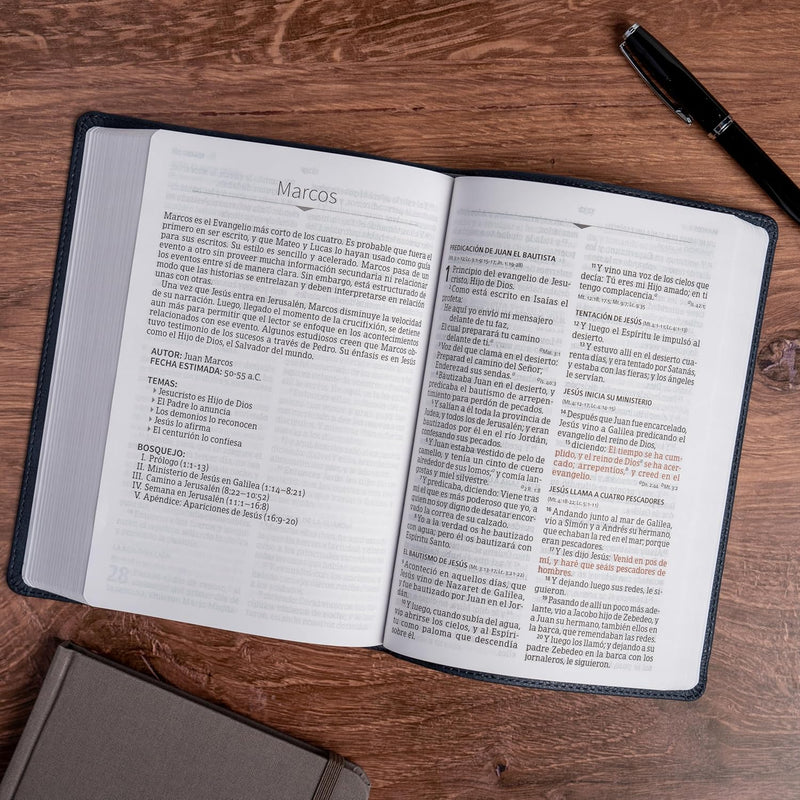 Marcos
Marcos es el Evangelio más corto de los cuatro. Es probable que fuera el
primero en ser escrito, y que Mateo y Lucas lo hayan usado como guía
para sus escritos. Su estilo es sencillo y acelerado. Marcos pasa de un
evento a otro sin proveer mucha información secundaria ni relacionar
los eventos entre sí de manera clara. Sin embargo, está estructurado de
modo que las historias se entrelazan y deben interpretarse en relación
unas con otras.
Una vez que Jesús entra en Jerusalén, Marcos disminuye la velocidad
de su narración. Luego, llegado el momento de la crucifixión, se detiene
aun más para permitir que el lector se enfoque en los acontecimientos
relacionados con ese evento. Algunos estudiosos creen que Marcos ob-
tuvo testimonio de los sucesos a través de Pedro. Su énfasis es en Jesús
como el Hijo de Dios, el Salvador del mundo.
AUTOR: Juan Marcos
FECHA ESTIMADA: 50-55 a.C.
TEMAS:
Jesucristo es Hijo de Dios
El Padre lo anuncia
Los demonios lo reconocen
Jesús lo afirma
El centurión lo confiesa
BOSQUEJO:
I. Prólogo (1:1-13)
II. Ministerio de Jesús en Galilea (1:14–8:21)
III. Camino a Jerusalén (8:22–10:52)
IV. Semana en Jerusalén (11:1–16:8)
V. Apéndice: Apariciones de Jesús (16:9-20)
PREDICACIÓN DE JUAN EL BAUTISTA
1 Principio del evangelio de Jesu-
cristo, Hijo de Dios.
2 Como está escrito en Isaías el
profeta:
He aquí yo envío mi mensajero
delante de tu faz,
El cual preparará tu camino
delante de ti.
3 Voz del que clama en el desierto:
Preparad el camino del Señor;
Enderezad sus sendas.
4 Bautizaba Juan en el desierto, y
predicaba el bautismo de arrepen-
timiento para perdón de pecados.
5 Y salían a él toda la provincia de
Judea, y todos los de Jerusalén; y eran
bautizados por él en el río Jordán,
confesando sus pecados.
6 Y Juan estaba vestido de pelo de
camello, y tenía un cinto de cuero
alrededor de sus lomos; y comía lan-
gostas y miel silvestre.
7 Y predicaba, diciendo: Viene tras
mí el que es más poderoso que yo, a
quien no soy digno de desatar encor-
vado la correa de su calzado.
8 Yo a la verdad os he bautizado
con agua; pero él os bautizará con
Espíritu Santo.
EL BAUTISMO DE JESÚS
9 Aconteció en aquellos días, que
Jesús vino de Nazaret de Galilea,
y fue bautizado por Juan en el Jor-
dán.
10 Y luego, cuando subía del agua,
vio abrirse los cielos, y al Espíri-
tu como paloma que descendía
sobre él.
11 Y vino una voz de los cielos que
decía: Tú eres mi Hijo amado; en ti
tengo complacencia.
TENTACIÓN DE JESÚS
12 Y luego el Espíritu le impulsó al
desierto.
13 Y estuvo allí en el desierto cua-
renta días, y era tentado por Satanás,
y estaba con las fieras; y los ángeles
le servían.
JESÚS INICIA SU MINISTERIO
14 Después que Juan fue encarcelado,
Jesús vino a Galilea predicando el
evangelio del reino de Dios,
15 diciendo: El tiempo se ha cum-
plido, y el reino de Dios se ha acer-
cado; arrepentíos, y creed en el
evangelio.
JESÚS LLAMA A CUATRO PESCADORES
16 Andando junto al mar de Galilea,
vio a Simón y a Andrés su hermano,
que echaban la red en el mar; porque
eran pescadores.
17 Y les dijo Jesús: Venid en pos de
mí, y haré que seáis pescadores de
hombres.
18 Y dejando luego sus redes, le si-
guieron.
19 Pasando de allí un poco más ade-
lante, vio a Jacobo hijo de Zebedeo, y
a Juan su hermano, también ellos en
la barca, que remendaban las redes.
20 Y luego los llamó; y dejando a su
padre Zebedeo en la barca con los
jornaleros, le siguieron.